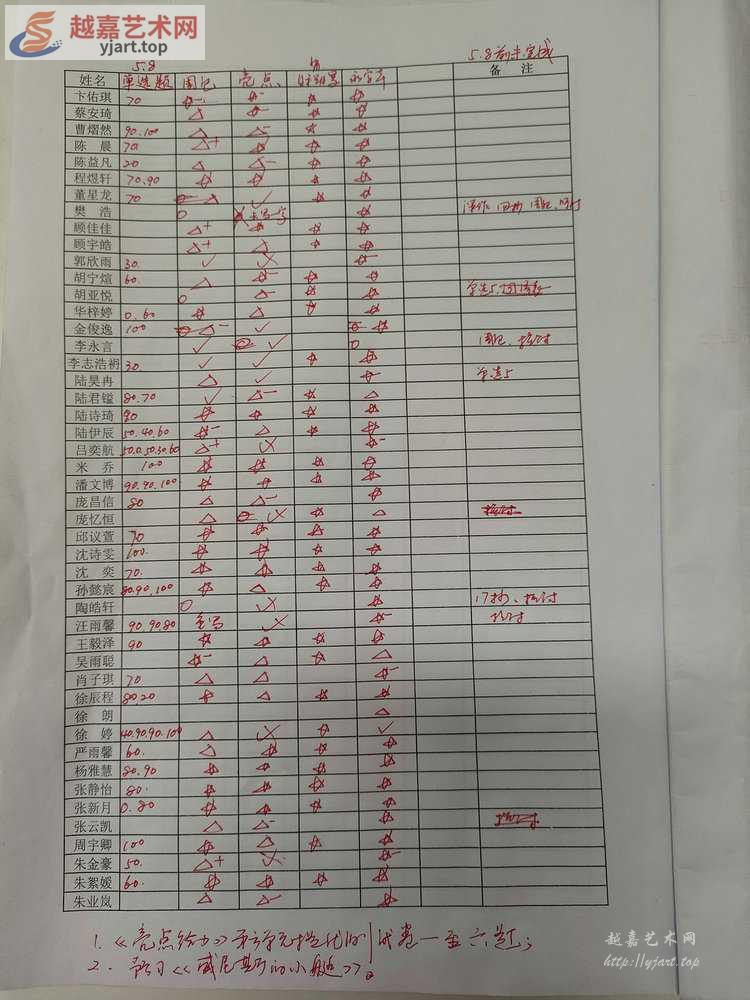 越嘉艺术网
yjart.top
5.8
5.8前未完成
姓名 单选题 周记 亮点 备注
卞佑琪 70
蔡安琦
曹熠然 90.100
陈晨 70
陈益凡 20
程煜轩 70.90
董星龙 70
樊浩 0
顾佳佳
顾宇皓
郭欣雨 30.
胡宁煊 60.
胡亚悦 0
华梓婷 0.60
金俊逸 100
李永言 周记、
李志浩祤 30.
陆昊冉
陆君镒 80.70
陆诗琦 90
陆伊辰 50.40.60
吕奕航 50.0.50.30.60
米乔 100
潘文博 90.90.100
庞昌信 80
庞忆恒
邱议萱 70
沈诗雯 100.
沈奕 70.
孙懿宸 80.90.100
陶皓轩 0
汪雨馨 90.90.80
王毅泽 90
吴雨聪
肖子琪 70
徐辰程 80.20
徐朗
徐婷 40.90.90.100
严雨馨 60.
杨雅慧 80.90
张静怡 80.
张新月 0.80
张云凯
周宇卿 100
朱金豪 50.
朱絮媛 60.
朱业岚
1.《亮点给力》 试卷一至六题；
2.预习《威尼斯的小艇》。
越嘉艺术网
http://yjart.top